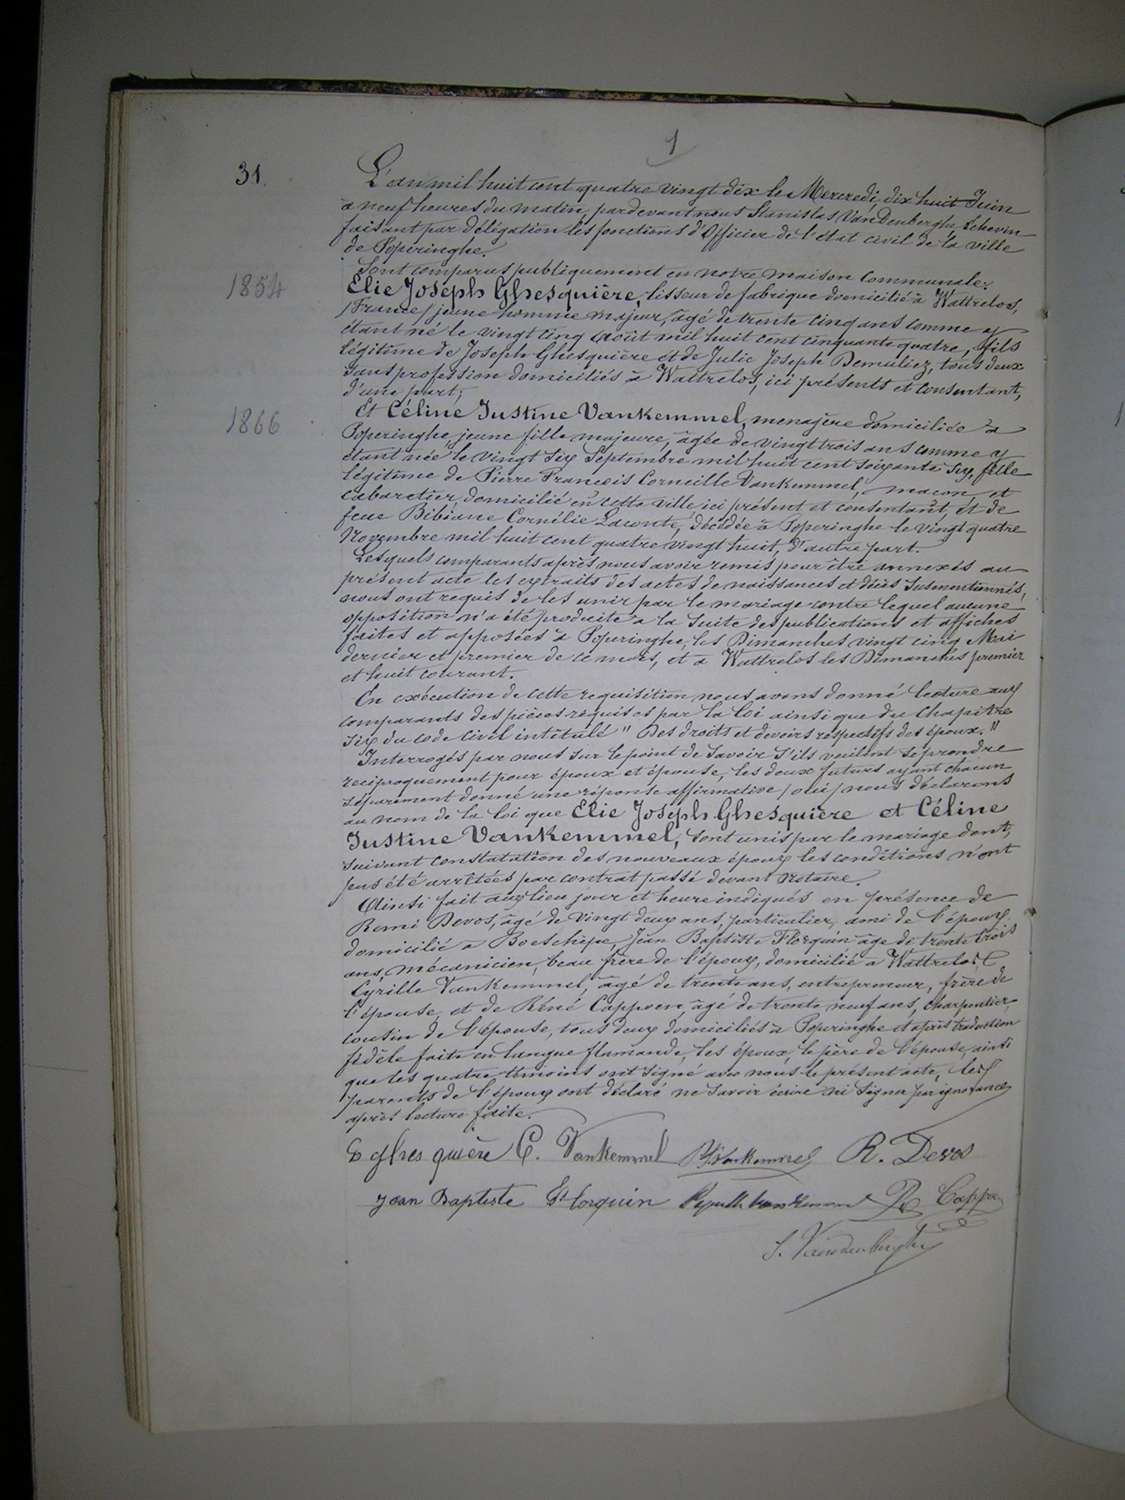 1
31.
L'an mil huit cent quatre vingt dix le Mercredi, dix huit Juin
à neuf heures du matin, pardevant nous Stanislas VanDenberghe Echevin
faisant par délégation les fonctions d'Officier de l'état civil de la ville
de Poperinghe.
Sont comparus publiquement en notre maison communale,
1854
Elie Joséph Ghesquière, lisseur de fabrique domicilié à Wattrelos,
(France) jeune homme majeur, âgé de trente cinq ans comme y
étant né le vingt cinq Août mil huit cent cinquante quatre, fils
légitime de Joseph Ghesquière et de Julie Joseph Demuliez, tous deux
sans profession domiciliés à Wattrelos, ici présents et consentant,
d'une part;
1866
Et Céline Justine VanKemmel, menagère domiciliée à
Poperinghe, jeune fille majeure, âgée de vingt trois ans comme y
étant née le vingt six Septembre mil huit cent soixante six, fille
légitime de Pierre François Corneille VanKemmel, maçon et
cabaretier, domicilié en cette ville ici présent et consentant, et de
feue Bibiane Cornélie Laconte, décédée à Poperinghe le vingt quatre
Novembre mil huit cent quatre vingt huit, d'autre part.
Lesquels comparants après nous avoir remis pour être annexés au
présent acte les extraits des actes de naissances et décès susmentionnés,
nous ont requis de les unir par le mariage contre lequel aucune
opposition n'a été produite à la suite des publications et affiches
faites et apposées à Poperinghe, les Dimanches vingt cinq Mai
dernier et premier de ce mois, et à Wattrelos les Dimanches premier
et huit courant.
En exécution de cette requisition nous avons donné lecture aux
comparants des pièces requises par la loi ainsi que du Chapitre
six du code civil intitulé "Des droits et devoirs respectifs des époux."
Interrogés par nous sur le point de savoir s'ils veulent se prendre
reciproquement pour époux et épouse, les deux futurs ayant chacun
séparement donné une réponse affirmative (oui) nous déclarons
au nom de la loi que Elie Joséph Ghesquière et Céline
Justine VanKemmel, sont unis par le mariage dont,
suivant constatation des nouveaux époux les conditions n'ont
pas été arrêtées par contrat passé devant Notaire.
Ainsi fait aux lieu jour et heure indiqués en présence de
Remi Devos, âgé de vingt deux ans, particulier, ami de l'époux
domicilié à Boeschèpe, Jean Baptiste Florquin âgé de trente trois
ans, mécanicien, beau frère de l'époux, domicilié à Wattrelos
Cyrille VanKemmel, âgé de trente ans, entrepreneur, frère de
l'épouse et de Réné Cappoen, âgé de trente neuf ans, charpentier,
cousin de l'épouse, tous deux domiciliés à Poperinghe et après traduction
fidèle faite en langue flamande, les époux, le père de l'épouse, ainsi
que les quatre témoins ont signé avec nous le présent acte, les
parents de l'époux ont déclaré ne savoir écrire ni signer par ignorance
après lecture faite.
E Ghesquière C. VanKemmel VanKemmel R. Devos
Jean Baptiste Florquin Cyrille VanKemmel R Cappoen
S. Vandenberghe